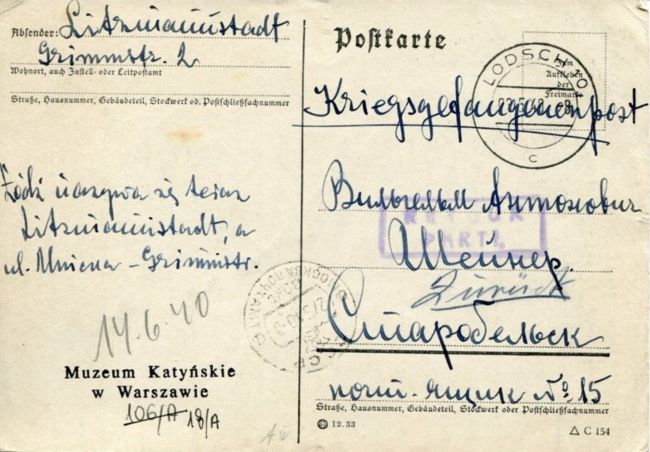 Absender: Litzmannstadt
Grimmstr. 2
Wohnort, auch Zustell- oder Leitpostamt
Straße, Hausnummer, Gebäudeteil, Stockwerk od. Postschließfachnummer
Łódź nazywa się teraz
Litzmannstadt, a
ul. - Grimmstr.
14.6.40
Muzeum Katyńskie
w Warszawie
106/A 18/A
Postkarte
Zum
Aufkleben
der
Freimarke
LODSCH
c
Kriegsgefangenenpost
Вильгельм Антонович
RETOUR
PARTI.
Шейнер
Zurück
Старобельск
почт. ящик № 15
Straße, Hausnummer, Gebäudeteil, Stockwerk oder Postschließfachnummer
12.33
C 154